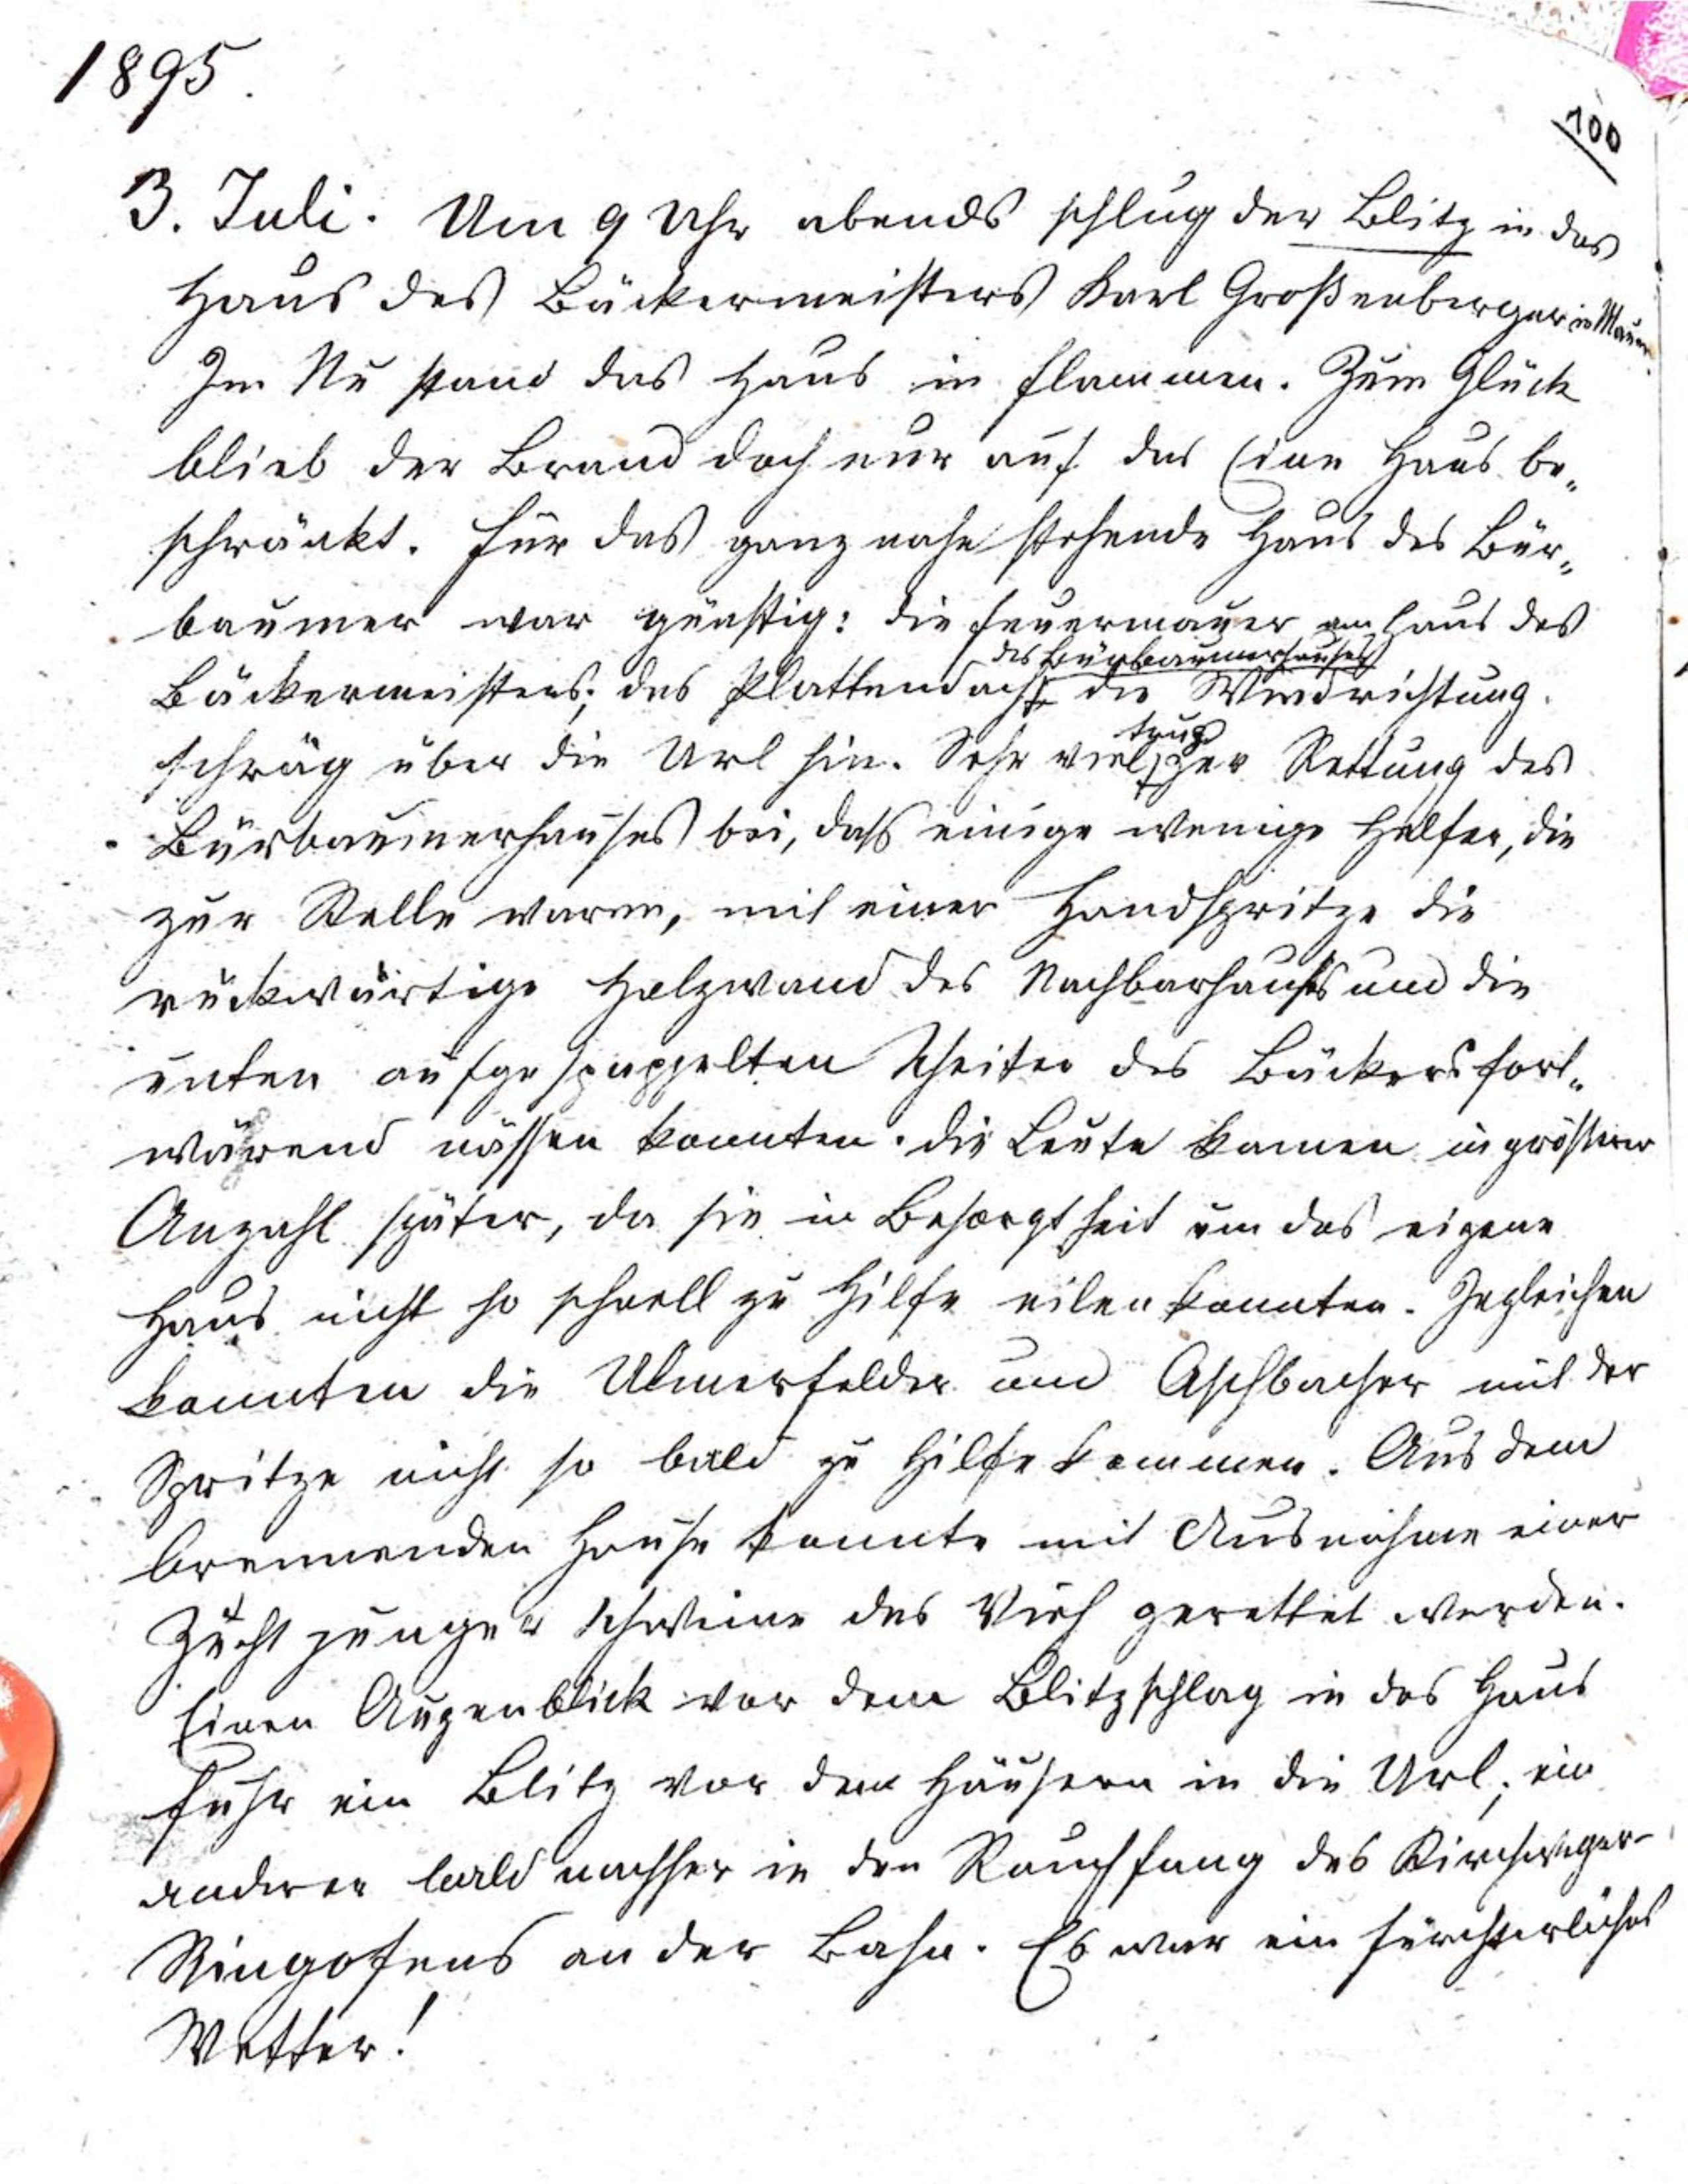 1895.
100
3. Juli. Um 9 Uhr abends schlug der Blitz in das
Haus des Bäckermeisters Karl Großenberger in Mauer.
Im Nu stand das Haus in Flammen. Zum Glück
blieb der Brand doch nur auf das Eine Haus be„
schränkt. Für das ganz nahe stehende Haus des Bür„
baumer war günstig: die Feuermauer am Haus des
des Bürbaumerhauses
Bäckermeisters; das Plattendach die Windrichtung
schräg über die Url hin. Sehr viel trug zur Rettung des
Bürbaumerhauses bei, dass einige wenige Helfer, die
zur Stelle waren, mit einer Handspritze die
rückwärtige Holzwand des Nachbarhauses und die
unten aufgestappelten Scheiter des Bäckers fort„
wärend nässen konnten. Die Leute kamen in größerer
Anzahl später, da sie in Besorgtheit um das eigene
Haus nicht so schnell zu Hilfe eilen konnten. Ingleichen
konnten die Ulmerfelder und Aschbacher mit der
Spritze nicht so bald zu Hilfe kommen. Aus dem
brennenden Hause konnte mit Ausnahme einer
Zucht junger Schweine das Vieh gerettet werden.
Einen Augenblick vor dem Blitzschlag in das Haus
fuhr ein Blitz vor den Häusern in die Url; ein
anderer bald nachher in den Rauchfang des Kirchweger-
Ringofens an der Bahn. Es war ein fürchterliches
Wetter!